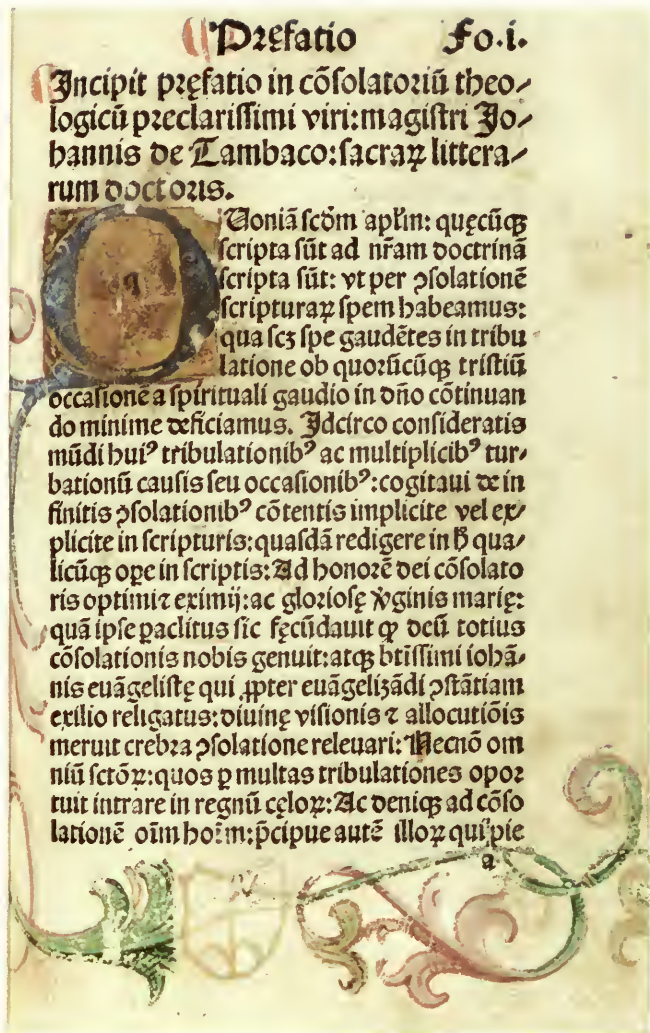 Prefatio Fo.i.
Incipit pręfatio in cõsolatoriũ theo⸗
logicũ preclarissimi viri:magistri Jo⸗
hannis de Tambaco:sacraꝝ littera⸗
rum doctoris.
QUoniã scḋm apl̓m: quęcũqꝫ
scripta sũt ad nr̃am doctrinã
scripta sũt: vt per ↄsolationẽ
scripturaꝝ spem habeamus:
qua scꝫ spe gaudẽtes in tribu
latione ob quorũcũqꝫ tristiũ
occasionẽ a spirituali gaudio in dño cõtinuan
do minime deficiamus. Idcirco consideratis
mũdi huiꝰ tribulationibꝰ ac multiplicibꝰ tur⸗
bationũ causis seu occasionibꝰ:cogitaui de in
finitis ↄsolationibꝰ cõtentis implicite vel ex⸗
plicite in scripturis:quasdã redigere in h̓ qua⸗
licũqꝫ oꝑe in scriptis:Ad honorẽ dei cõsolato
ris optimi ⁊ eximij:ac gloriosę v̓ginis marię:
quã ipse ꝑaclitus sic fęcũdauit ꝙ deũ totius
cõsolationis nobis genuit:atqꝫ btĩssimi iohã⸗
nis euãgelistę qui ꝓpter euãgelizãdi ↄstãtiam
exilio religatus:diuinę visionis ⁊ allocutiõis
meruit crebra ↄsolatione releuari:Necnõ om
niũ sctõꝝ:quos ꝑ multas tribulationes opor
tuit intrare in regnũ cęloꝝ:Ac deniqꝫ ad cõso
lationẽ oĩm hoĩm:p̃cipue autẽ illoꝝ qui pie
a